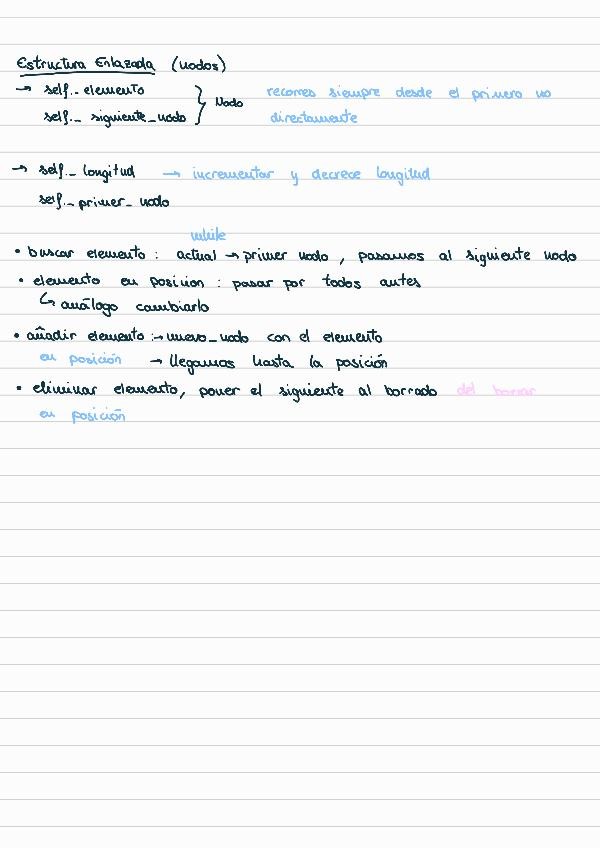 Estructura Enlazada (nodos)
→ self._elemento } Nodo recorres siempre desde el primero no
self._siguiente_nodo directamente
→ self._longitud → incrementar y decrece longitud
self._primer_nodo
while
• buscar elemento : actual → primer nodo, pasamos al siguiente nodo
• elemento en posicion : pasar por todos antes
↳ análogo cambiarlo
• añadir elemento :→ nuevo_nodo con el elemento
en posición → llegamos hasta la posición
• eliminar elemento, poner el siguiente al borrado del borrar
en posición